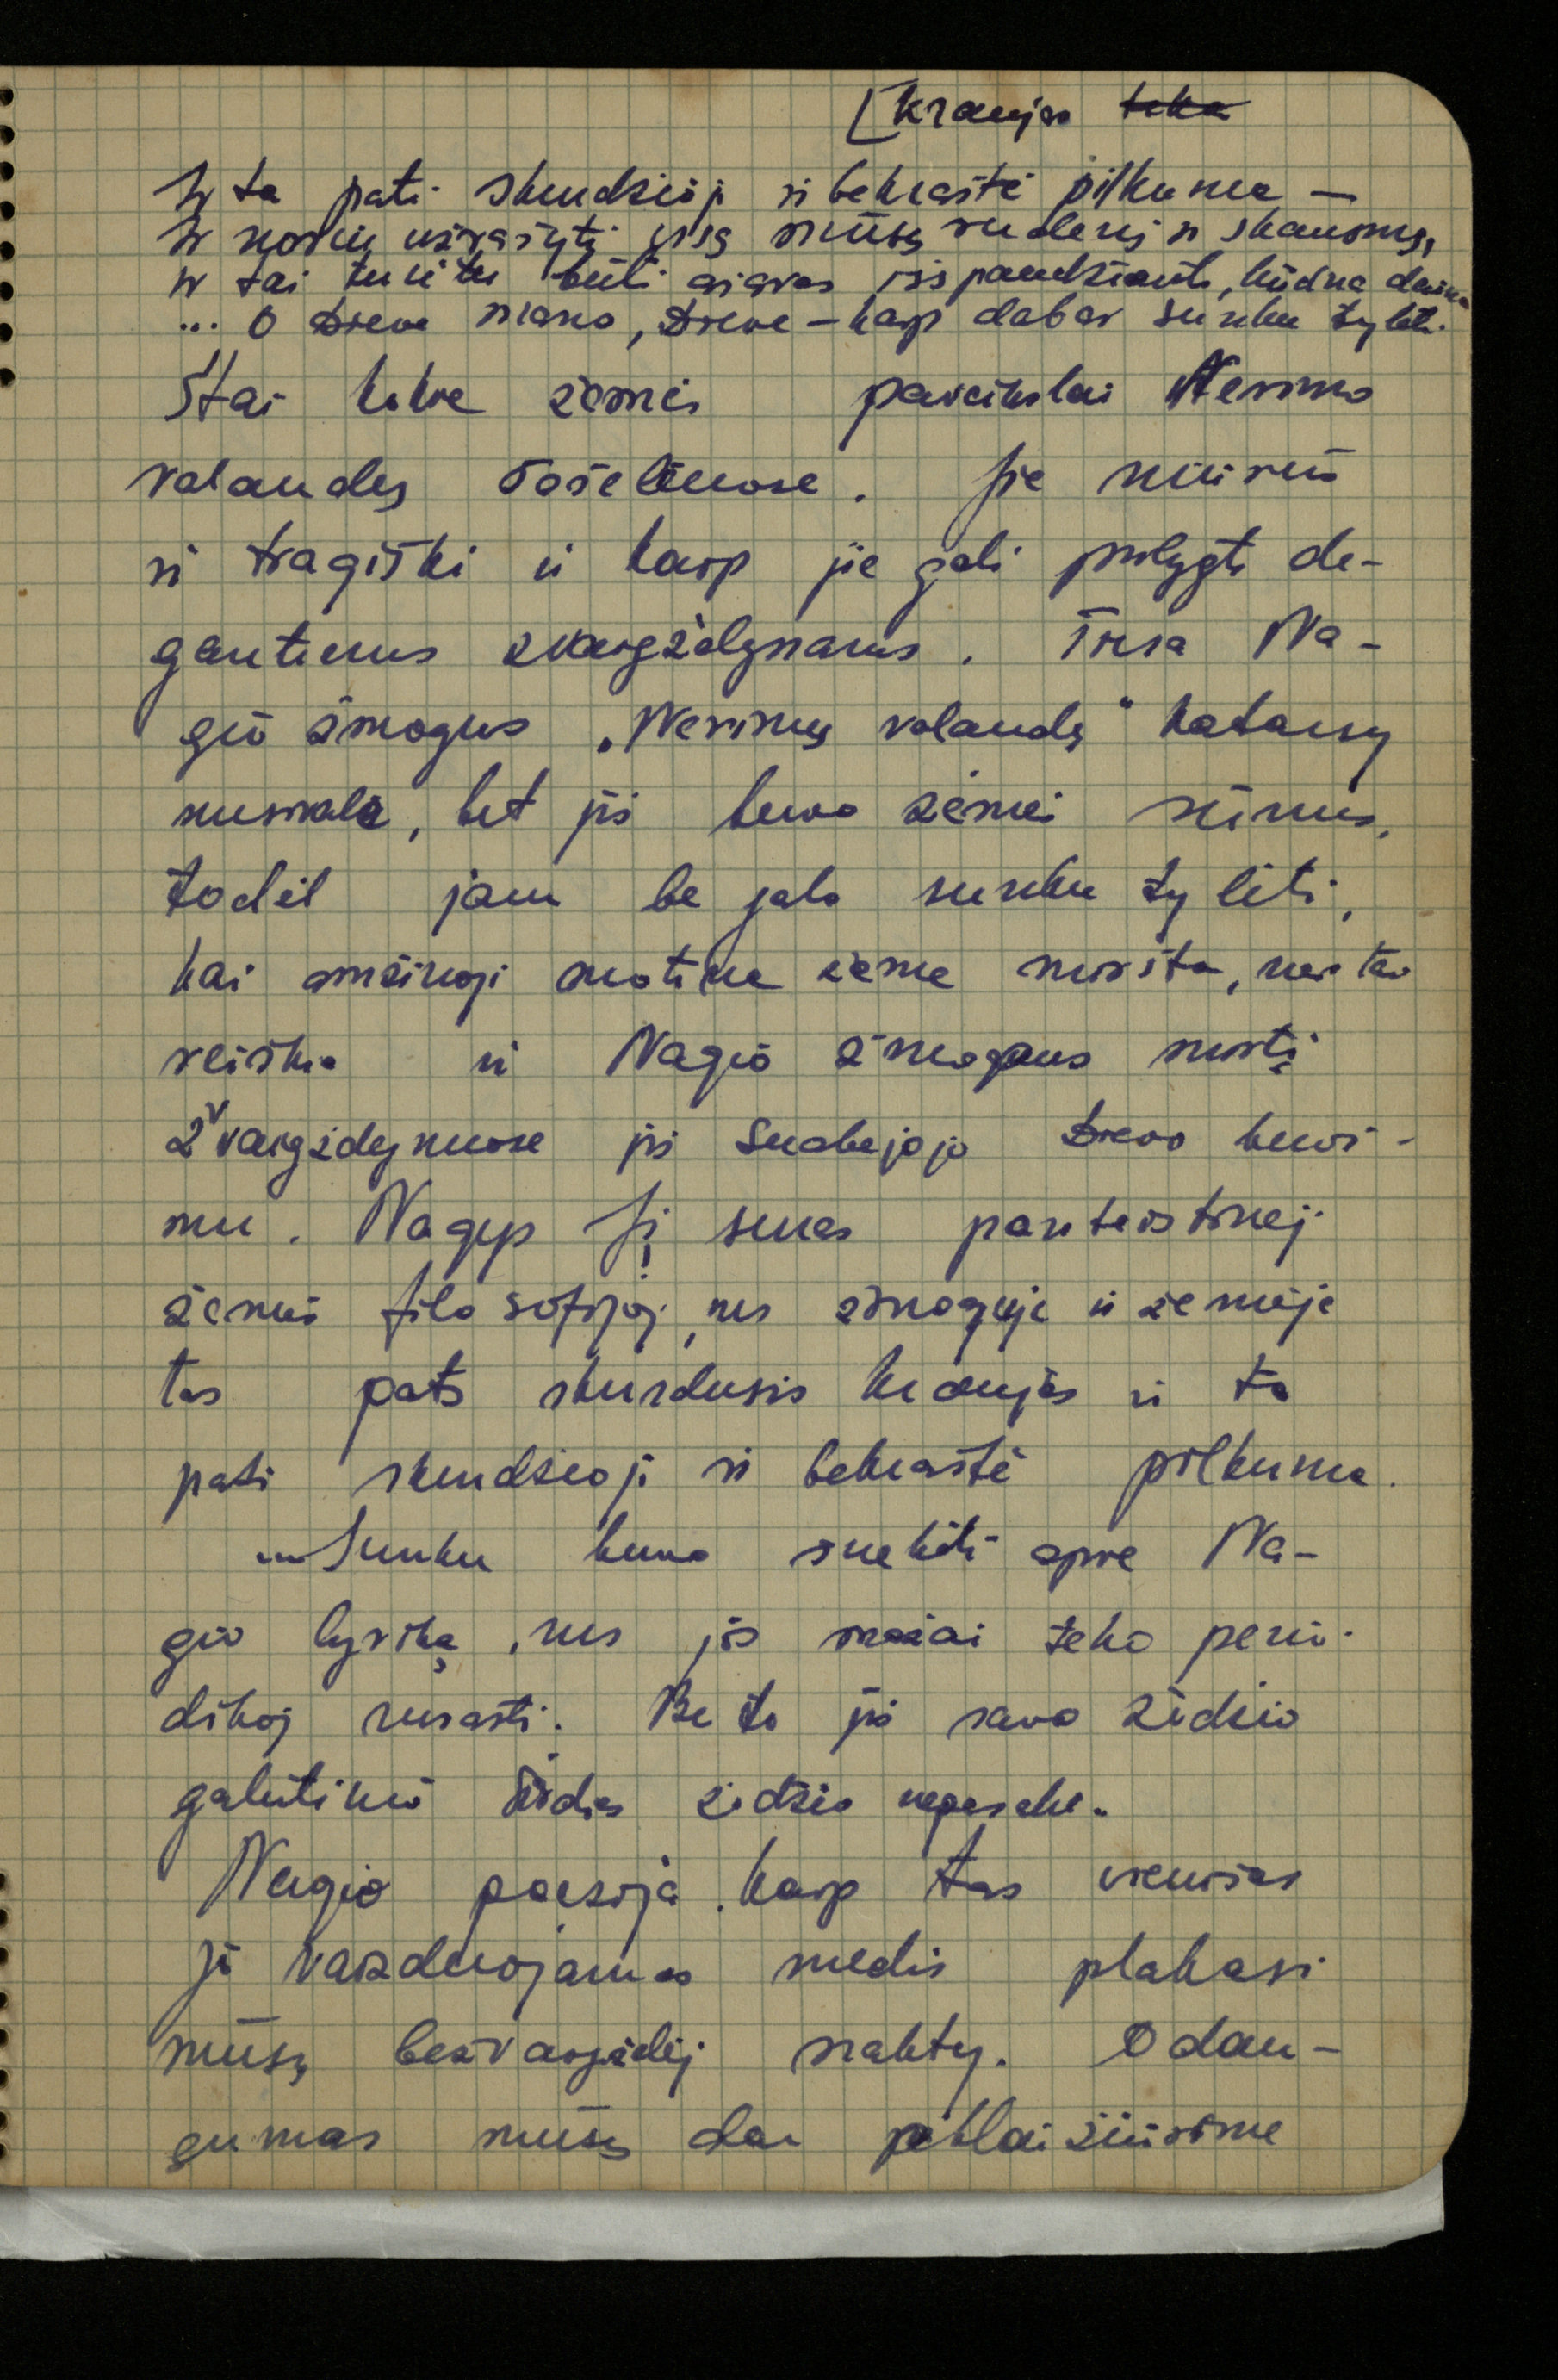 [kraujas teka
Ir ta pati skundžioji ir bekraštė pilkuma —
Ir noriu užrašyti visą mūsų rudenį ir skausmą,
ir tai turėtų būti ašaras išspaudžianti, liūdna daina
... O Dieve mano, Dieve – kaip dabar sunku tylėti.
Štai kokie žemės paveikslai Nerimo
valandų posmuose. Jie niūrūs
ir tragiški ir kaip jie gali prilygti de-
gantiems žvaigždynams. Tiesa Na-
gio žmogus „Nerimų valandų“ kataisy
nusivalė, bet jis buvo žemės sūnus,
todėl jam be galo sunku tylėti,
kai amžinoji motina žemė miršta, nes tai
reiškia ir Nagio žmogaus mirtį
Žvaigždynuose jis suabejojo Dievo buvi-
mu. Nagys jį suras panteistinėj
žemės filosofijoj, nes žmoguje ir žemėje
tas pats skurdusis kraujas ir ta
pati skundžioji ir bekraštė pilkuma.
Sunku buvo šnekėti apie Na-
gio lyriką, nes jos mažai teko perio-
dikoj surasti. Be to jis savo žodžio
galutinio žodžio nepasakė.
Nagio poezija, kaip tas vienišas
jo vaizduojamas medis plakasi
mūsų bežvaigždėj nakty. O dau-
gumas mūsų dar paklaižiūrime